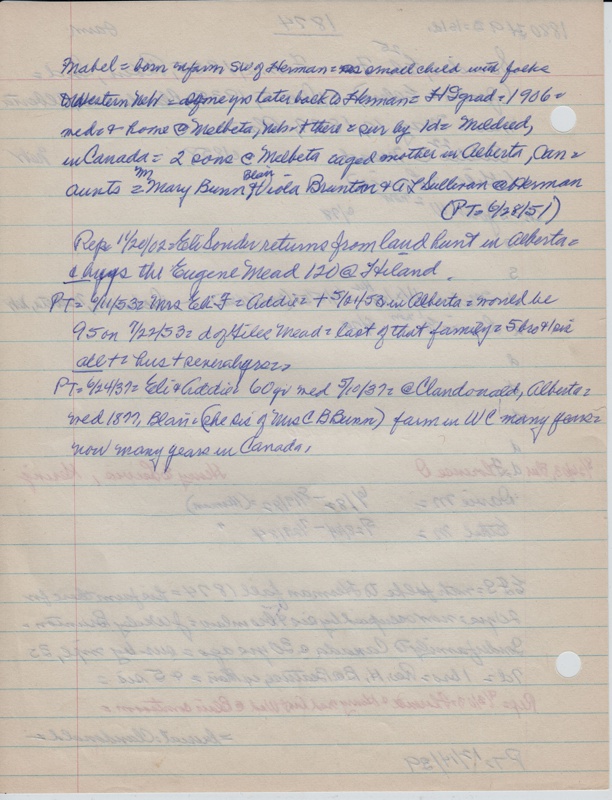 Mabel = born on farm SW of Herman = as small child with folks
to Western Neb = some yrs later back to Herman = HS grad = 1906 =
med & home @ Melbeta, Neb + there = sur by 1d = Mildred,
in Canada = 2 sons @ Melbeta & aged mother in Alberta, Can =
aunts = Mary Bunn & Viola Brunton & A L Sullivan @ Herman
M Blair
(PT = 6/28/51)
Rep = 11/20/02 = Eli Sonder returns from land hunt in Alberta =
& buys the Eugene Mead 120 @ Hiland.
PT = 6/11/53 = Mrs Eli F = Addie = + 5/21/53 in Alberta = would be
95 on 7/22/53 = d of Silas Mead = last of that family = 5 bro & sis
all + = hus + several yrs =
PT = 6/24/37 = Eli & Addie = 60 yr wed 5/10/37 = @ Clandonald, Alberta =
wed 1877, Blair = (she sis of Mrs C B Bunn) farm in WC many years =
now many years in Canada,